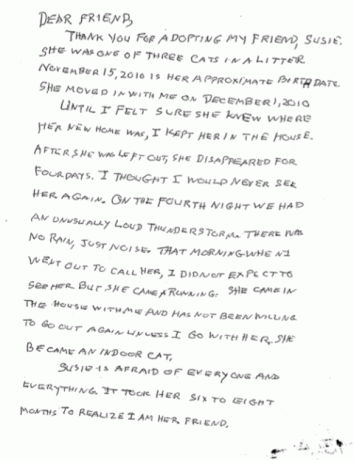 DEAR FRIEND,
THANK YOU FOR ADOPTING MY FRIEND, SUSIE.
SHE WAS ONE OF THREE CATS IN A LITTER
NOVEMBER 15, 2010 IS HER APPROXIMATE BIRTHDATE.
SHE MOVED IN WITH ME ON DECEMBER 1, 2010
UNTIL I FELT SURE SHE KNEW WHERE
HER NEW HOME WAS, I KEPT HER IN THE HOUSE.
AFTER SHE WAS LEFT OUT, SHE DISAPPEARED FOR
FOUR DAYS. I THOUGHT I WOULD NEVER SEE
HER AGAIN. ON THE FOURTH NIGHT WE HAD
AN UNUSUALLY LOUD THUNDERSTORM. THERE WAS
NO RAIN, JUST NOISE. THAT MORNING WHEN I
WENT OUT TO CALL HER, I DID NOT EXPECT TO
SEE HER BUT SHE CAME A RUNNING. SHE CAME IN
THE HOUSE WITH ME AND HAS NOT BEEN WILLING
TO GO OUT AGAIN UNLESS I GO WITH HER. SHE
BECAME AN INDOOR CAT.
SUSIE IS AFRAID OF EVERYONE AND
EVERYTHING. IT TOOK HER SIX TO EIGHT
MONTHS TO REALIZE I AM HER FRIEND.